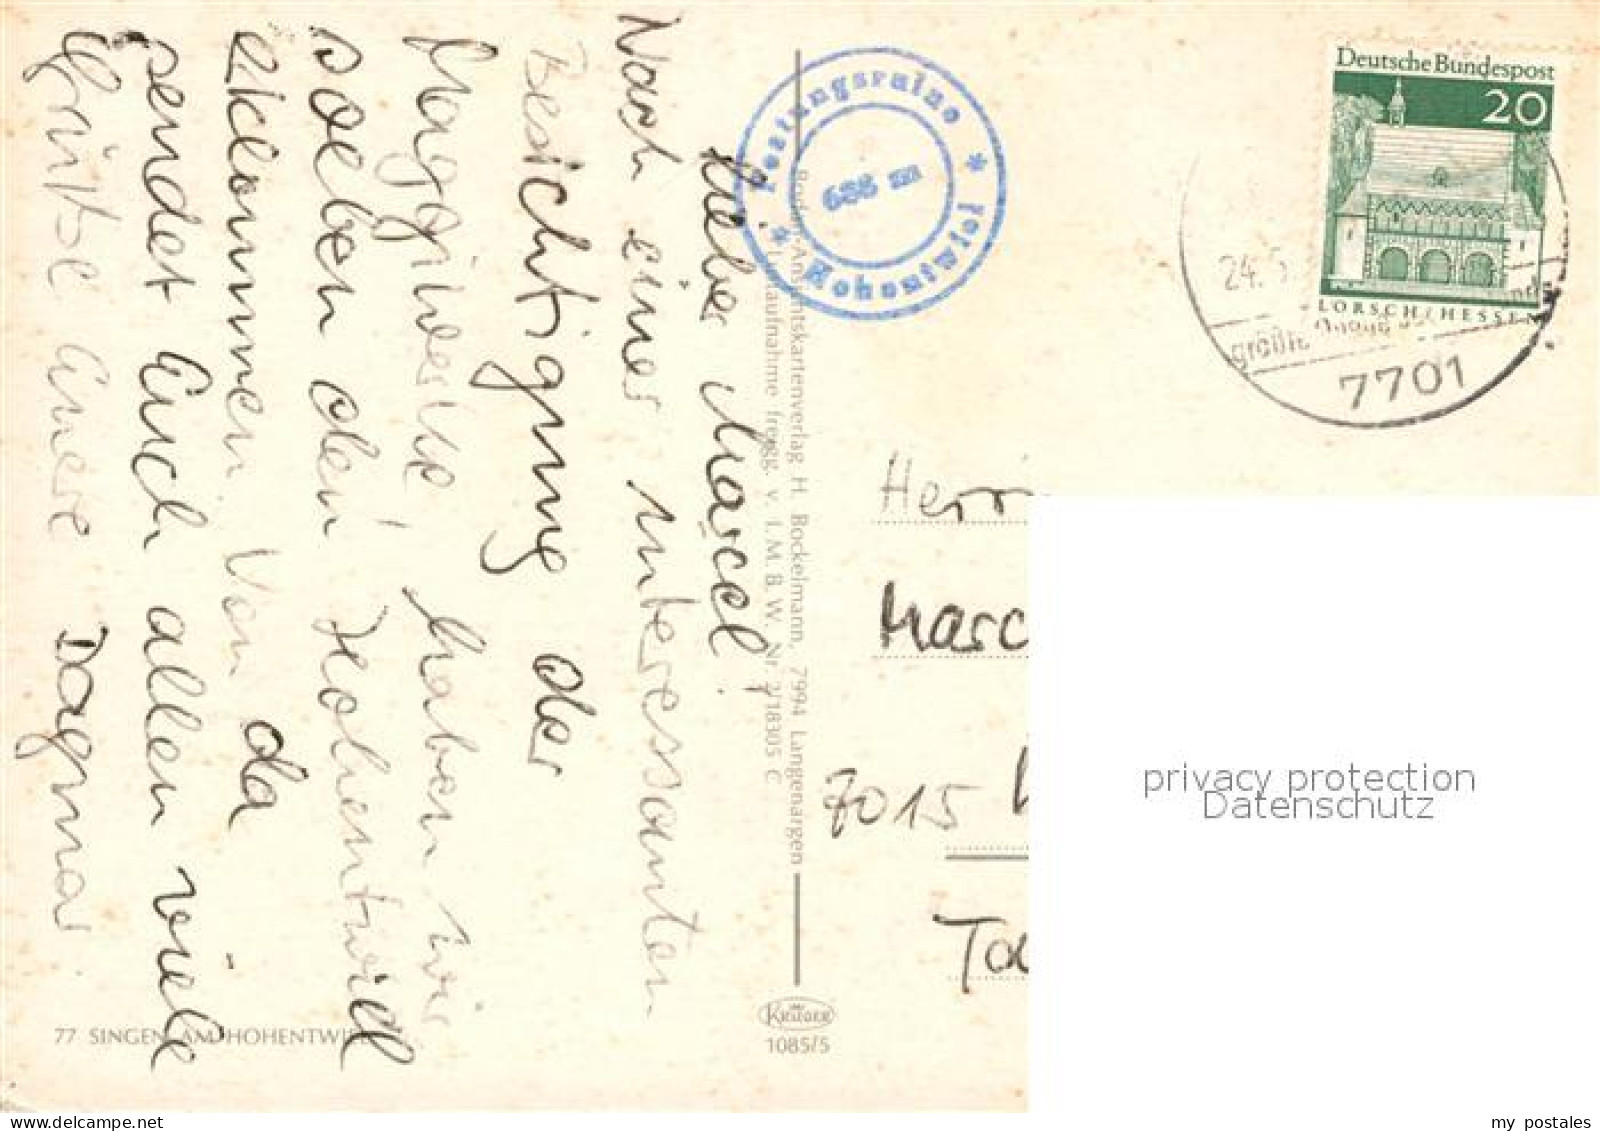 Lieber Marcel!
Nach einer interessanten
Besichtigung der
Maggiwerke haben wir
soeben den Hohentwiel
erklommen. Von da
sendet Euch allen viele
Grüße Eure Dagmar.
Festungsruine
* Hohentwiel *
688 m
Deutsche Bundespost
20
LORSCH/HESSEN
24. 5
größte
7701
Bodensee-Ansichtskartenverlag H. Bockelmann, 7994 Langenargen
Luftaufnahme freigg. v. I. M. B. W. Nr. 2/18305 C
Herrn
Marc
7015
Ta
77 SINGEN AM HOHENTWIEL
KRÜGER
1085/5
privacy protection
Datenschutz
www.delcampe.net
my_postales